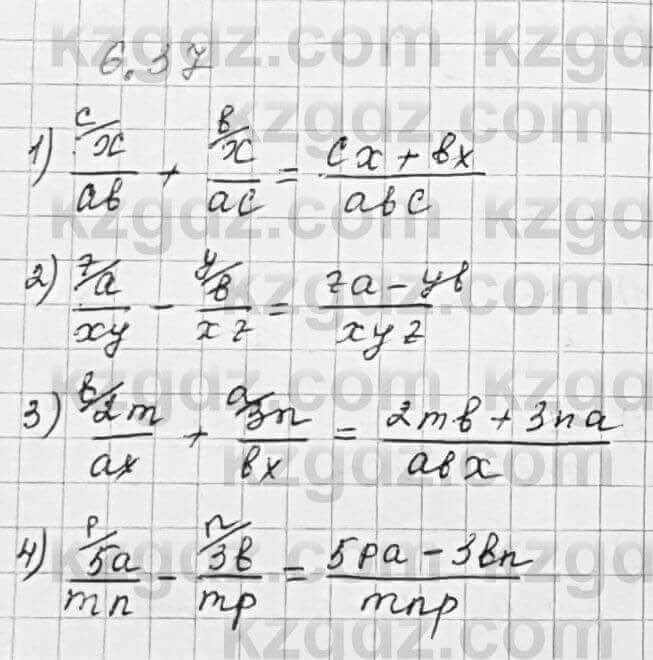 6.37
1) c/x/ab + b/x/ac = cx + bx/abc
2) z/a/xy - y/b/xz = za - yb/xyz
3) b/2m/ax + a/3n/bx = 2mb + 3na/abx
4) p/5a/mn - n/3b/mp = 5pa - 3bn/mnp
kzgdz.com